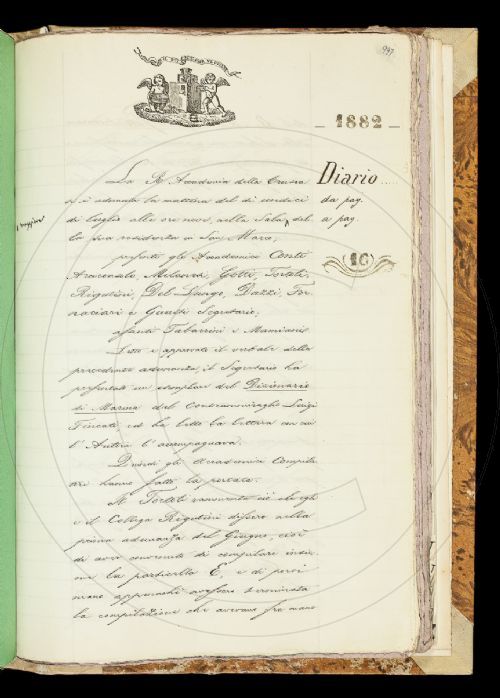 997
— 1882 —
Diario
da pag.
a pag.
16
La R. Accademia della Crusca
si è adunata la mattina del dì undici
di luglio alle ore nove, nella Sala, del
maggiore
la sua residenza in San Marco,
presenti gli Accademici Conti
Aracenselo, Milanesi, Gotti, Tortoli,
Rigutini, Del Lungo, Dazzi, For-
naciari e Guasti Segretario;
assenti Tabarrini e Mamiani.
Letto e approvato il verbale della
precedente adunanza, il Segretario ha
presentato un esemplare del Dizionario
di Marina del Contrammiraglio Luigi
Fincati, ed ha letto la lettera con cui
l'Autore l'accompagnava.
Quindi gli Accademici Compila-
tori hanno fatto la portata.
Il Tortoli rammenta ciò che egli
e il Collega Rigutini dissero nella
prima adunanza del Giugno, cioè
di aver convenuto di compilare insie-
me la particella E, e di porci
mano appena avessero terminata
la compilazione che avevano fra mano